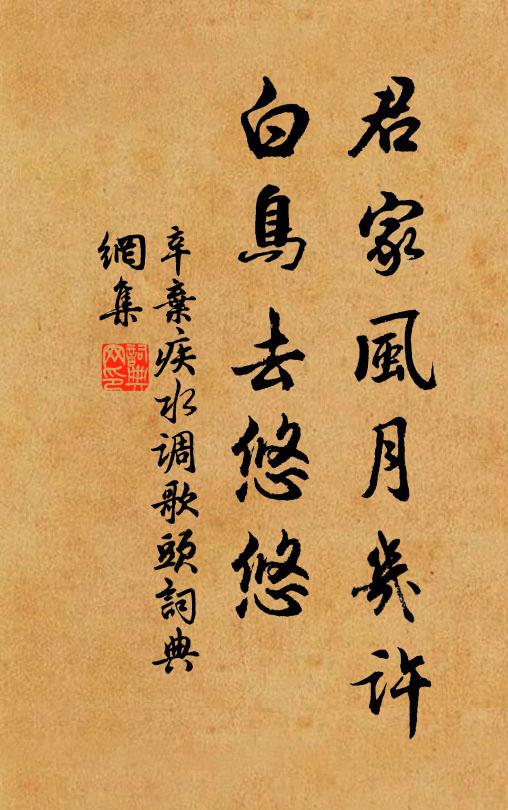 君家風月幾許
白鳥去悠悠
辛棄疾水调歌頭詞典
網集
詞典網印